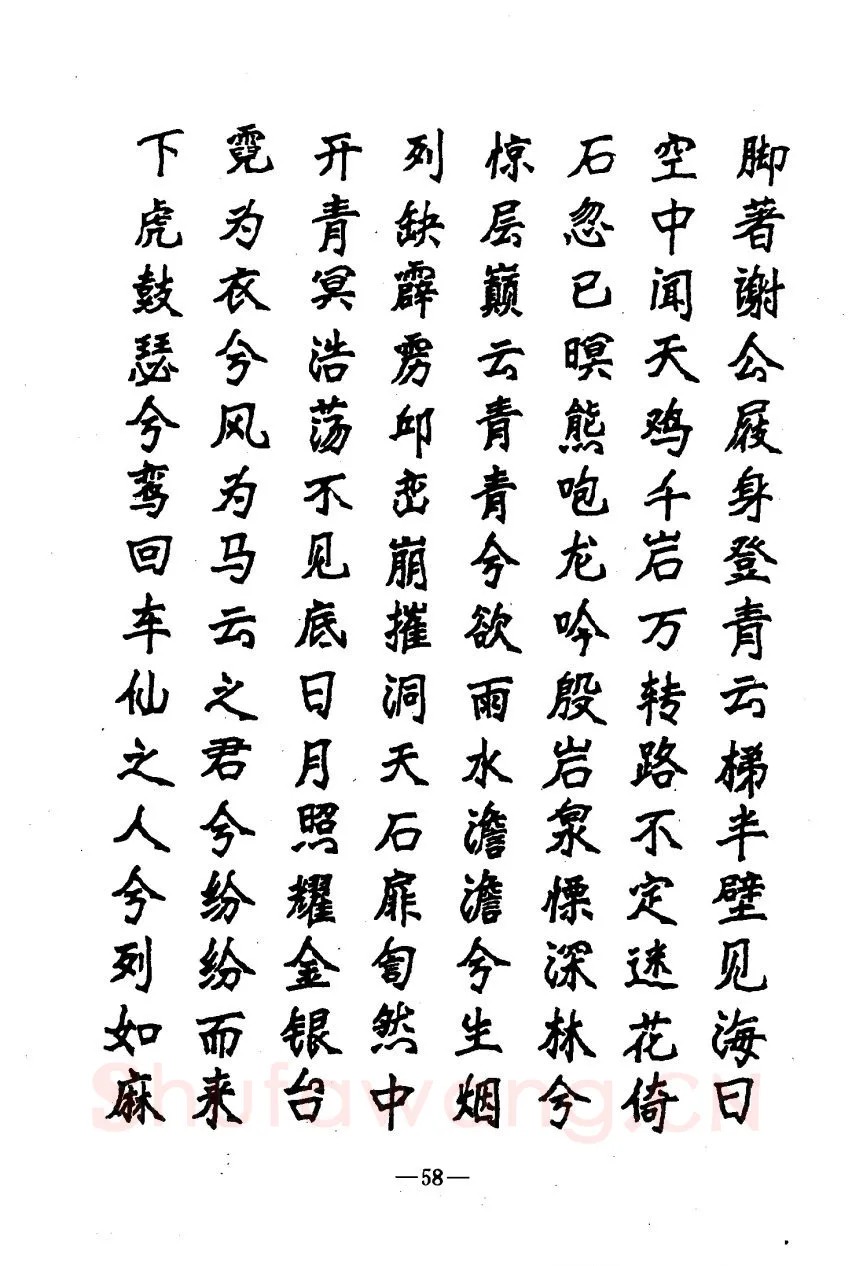 脚著谢公屐身登青云梯半壁见海日
空中闻天鸡千岩万转路不定迷花倚
石忽已暝熊咆龙吟殷岩泉慄深林兮
惊层巅云青青兮欲雨水澹澹兮生烟
列缺霹雳邱峦崩摧洞天石扉訇然中
开青冥浩荡不见底日月照耀金银台
霓为衣兮风为马云之君兮纷纷而来
下虎鼓瑟兮鸾回车仙之人兮列如麻
—58—
Shufawang.CN